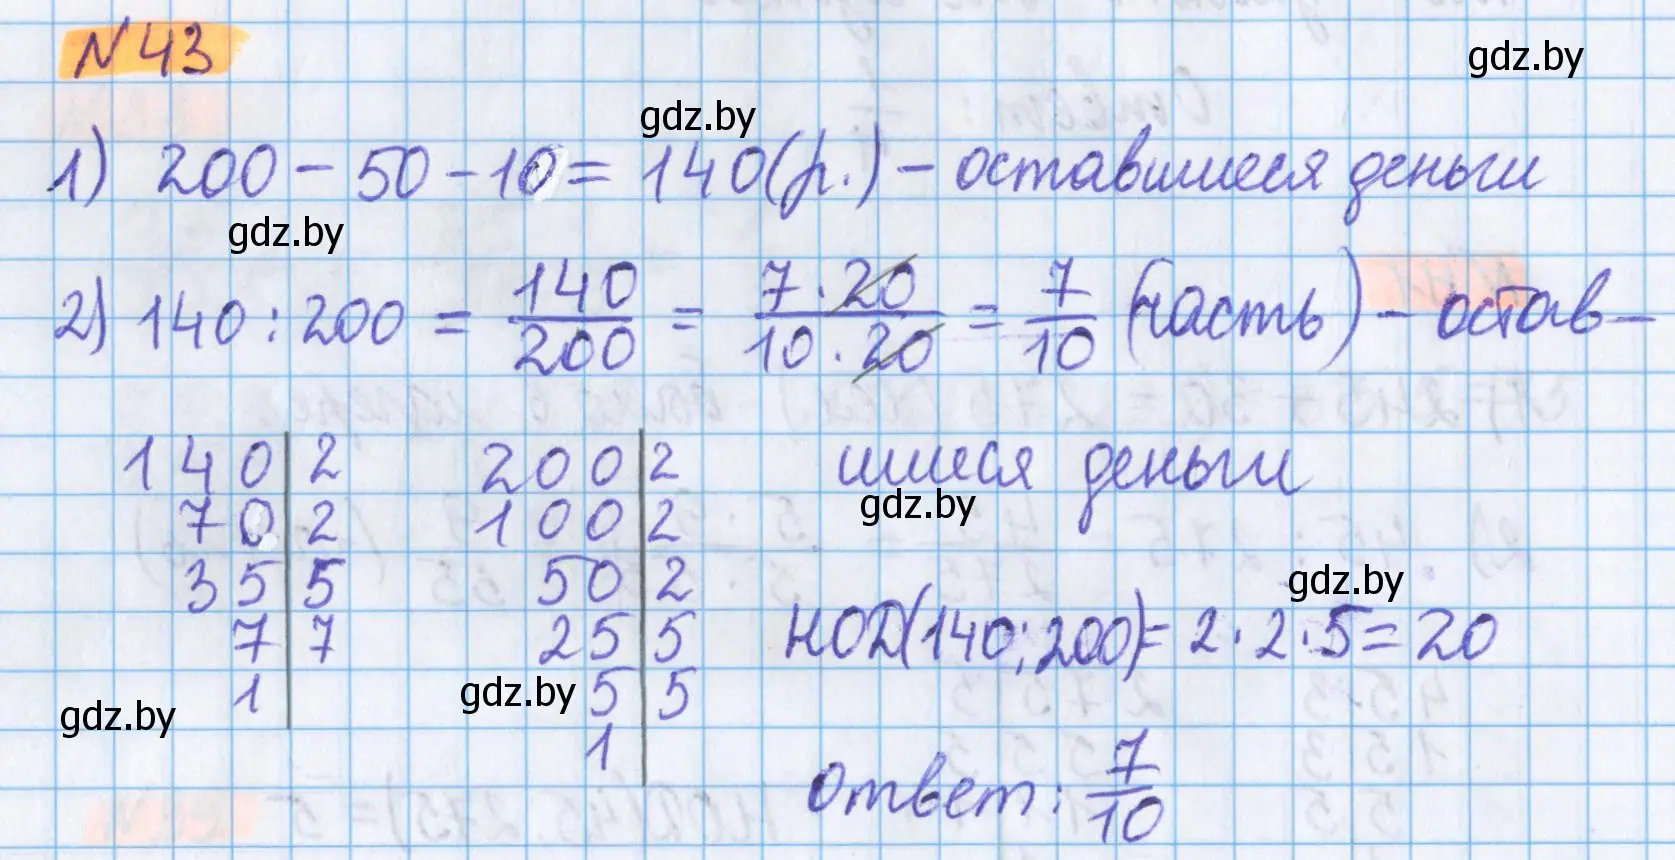 N 43
gdz.by
gdz.by
1) 200 - 50 - 10 = 140 (р.) - оставшиеся деньги
gdz.by
2) 140 : 200 = 140/200 = 7 · 20/10 · 20 = 7/10 (часть) - остав-
шиеся деньги
gdz.by
140 | 2
70 | 2
35 | 5
7 | 7
1
200 | 2
100 | 2
50 | 2
25 | 5
5 | 5
1
gdz.by
НОД(140; 200) = 2 · 2 · 5 = 20
gdz.by
gdz.by
Ответ: 7/10